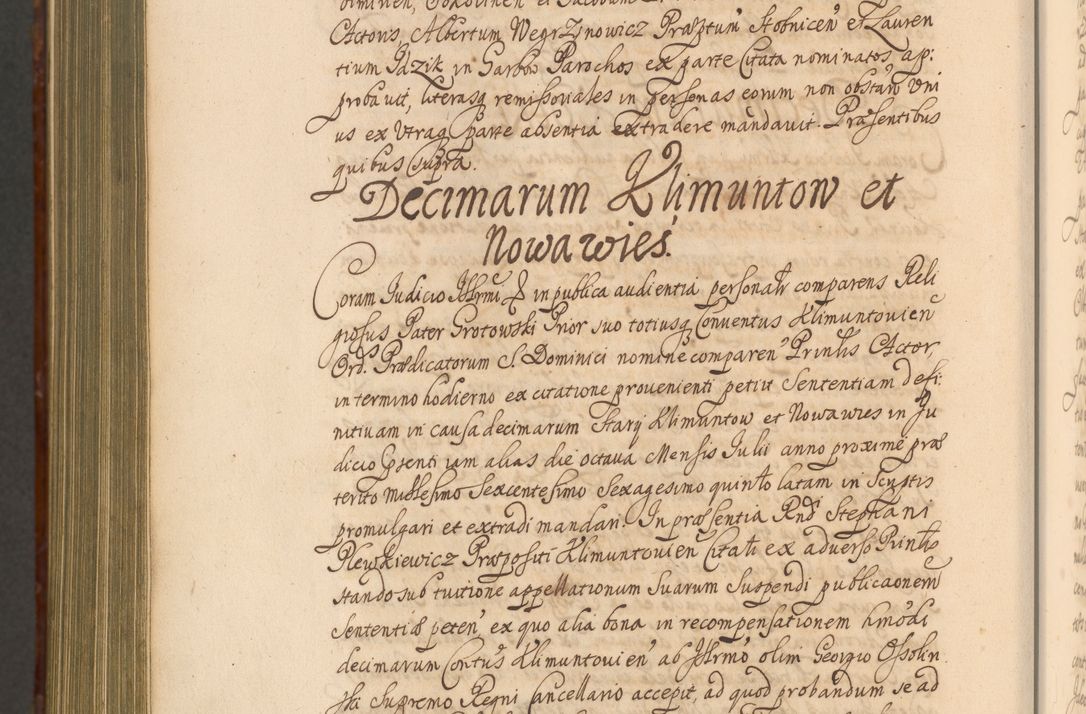 Actoris, Albertum Wegrzÿnowicz Præptum Stobnicen̄ et Lauren
tium Idzik in Garbow Parochos ex parte Citata nominatos, ap:
probauit, literasq remissoriales in personas eorum non obstan̄ Vni
us ex Vtraq parte absentia extradere mandauit. Præsentibus
quibus supra.
Decimarum Klimuntow et
Nowawieś.
Coram Judicio Illrmi & in publica audientia personalr comparens Reli
giosus Pater Grotowski Prior suo totiusq Conuentus Klimuntouien̄
Ord. Prædicatorum S. Dominici nomine comparen̄ Prinlis Actor,
in termino hodierno ex citatione prouenienti petiit Sententiam defi:
nitiuam in causa decimarum Starÿ Klimuntow et Nowawies in Ju
dicio psenti iam alias die octaua Mensis Julii anno proxime præ
terito Millesimo Sexcentesimo Sexagesimo quinto latam in Scriptis
promulgari et extradi mandari. In præsentia Rndi Stephani
Pleyskiewicz Præpositi Klimuntouien Citati ex aduerso Prinlis
stando sub tuitione appellationum suarum Suspendi publicaonem
Sententiæ peten̄ ex quo alia bona in recompensationem hmōdi
decimarum Contus Klimuntouien̄ ab Illrmo olim Georgio Ossolin
ski Supremo Regni Cancellario accepit, ad quod probandum se ad